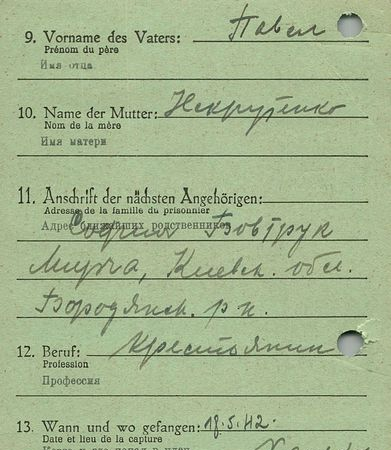 9. Vorname des Vaters: Павел
Prénom du père
Имя отца
10. Name der Mutter: Некрутенко
Nom de la mère
Имя матери
11. Anschrift der nächsten Angehörigen:
Adresse de la famille du prisonnier
Адрес ближайших родственников
София Бовтрук
Мирча, Киевск. обл.
Бородянск. р-н.
12. Beruf: крестьянин
Profession
Профессия
13. Wann und wo gefangen: 18.5.42.
Date et lieu de la capture